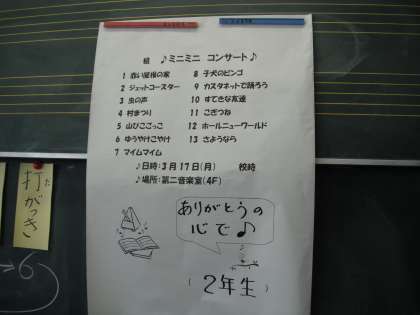 組 ♪ミニミニ コンサート♪
1 赤い屋根の家
2 ジェットコースター
3 虫の声
4 村まつり
5 山びこごっこ
6 ゆうやけこやけ
7 マイムマイム
8 子犬のビンゴ
9 カスタネットで踊ろう
10 すてきな友達
11 こぎつね
12 ホールニューワールド
13 さようなら
♪日時:3月17日(月) 校時
♪場所:第二音楽室(4F)
ありがとうの
心で♪
(2年生)
打がっき
だ
6